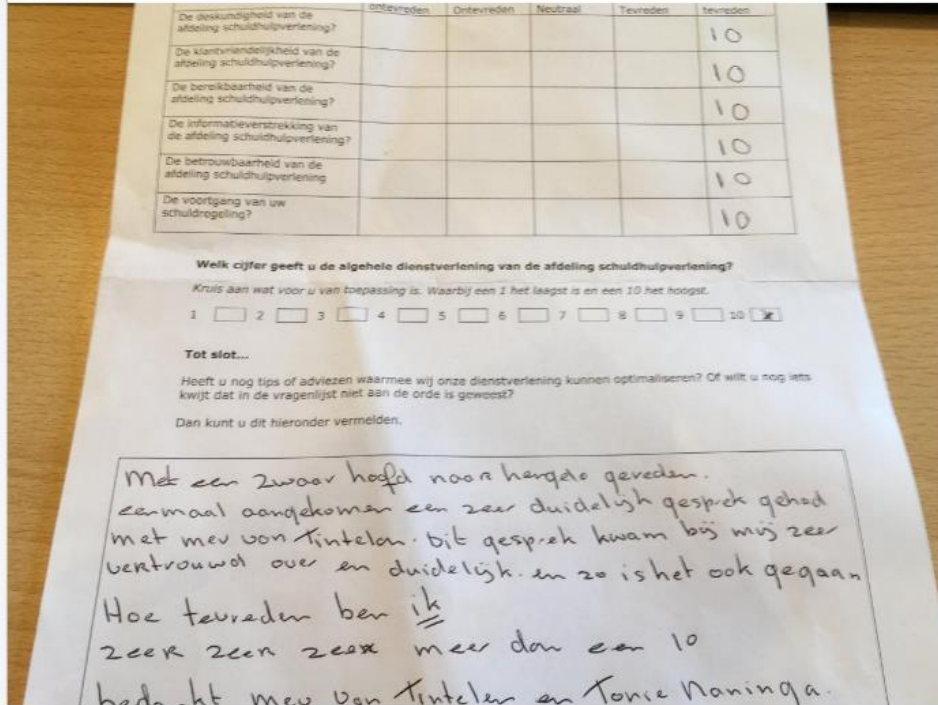 ontevreden Ontevreden Neutraal Tevreden tevreden
De deskundigheid van de
afdeling schuldhulpverlening?
10
De klantvriendelijkheid van de
afdeling schuldhulpverlening?
10
De bereikbaarheid van de
afdeling schuldhulpverlening?
10
De informatieverstrekking van
de afdeling schuldhulpverlening?
10
De betrouwbaarheid van de
afdeling schuldhulpverlening
10
De voortgang van uw
schuldregeling?
10
Welk cijfer geeft u de algehele dienstverlening van de afdeling schuldhulpverlening?
Kruis aan wat voor u van toepassing is. Waarbij een 1 het laagst is en een 10 het hoogst.
1 2 3 4 5 6 7 8 9 10 x
Tot slot...
Heeft u nog tips of adviezen waarmee wij onze dienstverlening kunnen optimaliseren? Of wilt u nog iets
kwijt dat in de vragenlijst niet aan de orde is geweest?
Dan kunt u dit hieronder vermelden.
Met een zwaar hoofd naar hengelo gereden.
eenmaal aangekomen een zeer duidelijk gesprek gehad
met mev von Tintelen. Dit gesprek kwam bij mij zeer
vertrouwd over en duidelijk. en zo is het ook gegaan
Hoe tevreden ben ik
zeer zeer zeer meer dan een 10
bedankt mev von Tintelen en Tonie Naninga.